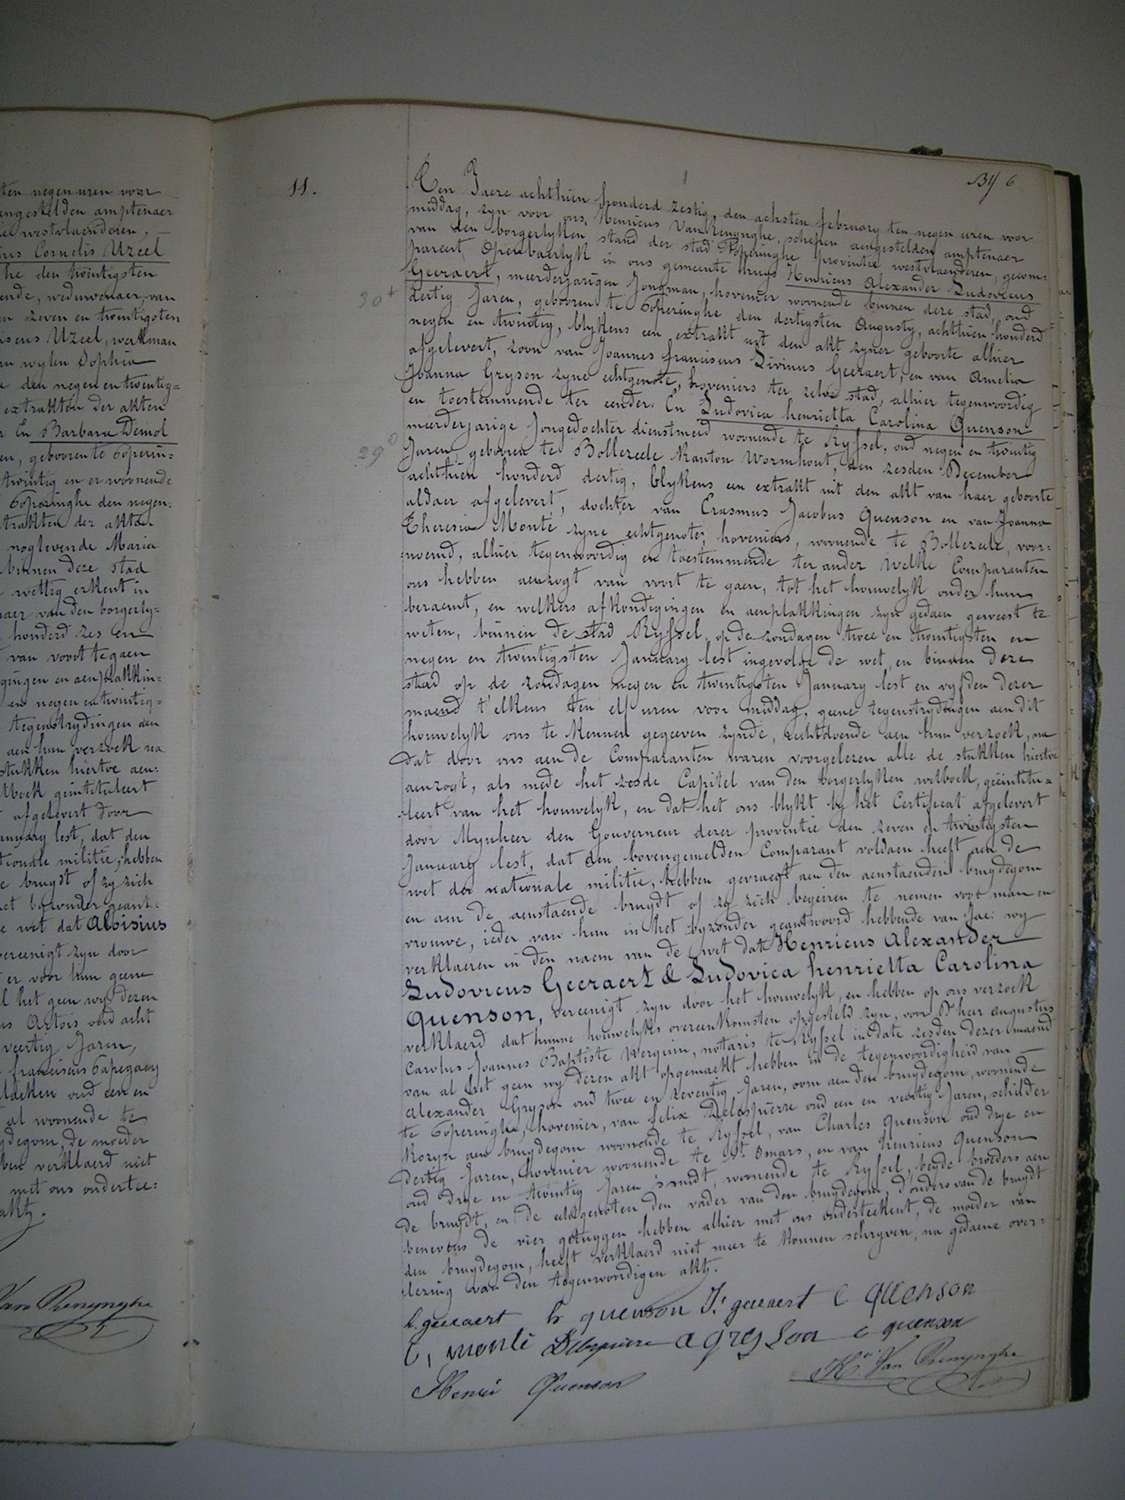 ten negen uren voor
engestelden amptenaer
westvlaenderen,
Cornelis Uzeel
the den twintigsten
erde, weduwenaer, van
zeven en twintigsten
iscus Uzeel, werkman
an wylen Sophia
den negen en twintig=
extrakten der akten
En Barbara Demol
en, gebooren te Poperin=
twintig en er woonende
Poperinghe den negen
trakten der akten
noglevende Maria
binnen deze stad
wettig erkent in
naer van den borgerly=
honderd zes en
van voort te gaen
gingen en aenplakkin=
en negen en twintig=
tegenstrydingen aen
aen hun verzoek na
stukken hiertoe aen=
tboek geintituleert
afgelevert door
January lest, dat den
tionale militie, hebben
bruydt of zy zich
het byzonder geant=
wet dat Aloisius
vereenigt zyn door
er voor hun geene
al het geen wy dezen
us Artois oud acht
veertig Jaren,
franciscus
oud een en
al woonende te
ydegom, de moeder
ben verklaerd niet
met ons ondertee=
akt.
Van Renynghe
11.
Bff 6
Een Jaere achthien honderd zestig, den achsten february ten negen uren voor
middag, zyn voor ons, Henricus VanRenynghe, schepen aengestelden amptenaer
van den borgerlyken stand der stad Poperinghe provintie westvlaenderen, gecom=
pareert openbaerlyk in ons gemeente huys Henricus Alexander Ludovicus
Geeraert, meerderjarigen Jongman, hovenier woonende binnen deze stad, oud
30+
dertig Jaren, gebooren te Poperinghe den dertigsten Augusty, achthien honderd
negen en twintig, blykens een extrakt uit den akt zyner geboorte alhier
afgelevert, zoon van Joannes franciscus Livinus Geeraert, en van Amelia
Joanna Gryson zyne echtgenote, hoveniers ter zelve stad, alhier tegenwoordig
en toestemmende ter eender. En Ludovica henrietta Carolina Quenson
meerderjarige Jongedochter dienstmeid woonende te Ryssel, oud negen en twintig
29
Jaren gebooren te Bollezeele Kanton Wormhout, den zesden December
achthien honderd dertig, blykens een extrakt uit den akt van haer geboorte
aldaer afgelevert, dochter van Erasmus Jacobus Quenson en van Joanna
Theresia Monté zyne echtgenote, hoveniers, woonende te Bollezeele, voor=
noemd, alhier tegenwoordig en toestemmende ter ander Welke Comparanten
ons hebben aenzogt van voort te gaen, tot het houwelyk onder hun
beraemt, en welkers afkondegingen en aenplakkingen zyn gedaen geweest te
weten, binnen de stad Ryssel, op de zondagen twee en twintigsten en
negen en twintigsten January lest ingevolge de wet, en binnen deze
stad op de zondagen negen en twintigsten January lest en vyfden dezer
maend t'elkens ten elf uren voor middag, geene tegenstrydingen aen dit
houwelyk ons te kennen gegeeven zynde, rechtdoende aen hun verzoek, na
dat door ons aen de Comparanten waren voorgelezen alle de stukken hiertoe
aenzogt, als mede het zesde Capitel van den borgerlyken wetboek, geïntitu=
leert van het houwelyk, en dat het ons blykt by het Certificat afgelevert
door Mynheer den Gouverneur dezer provintie den zeven en twintigsten
January lest, dat den bovengemelden Comparant voldaen heeft aen de
wet der nationale militie, hebben gevraegt aen den aenstaenden bruydegom
en aen de aenstaende bruydt of zy zich begeiren te nemen voor man en
vrouwe, ieder van hun in het byzonder geantwoord hebbende van Jae: wy
verklaeren in den naem van de wet dat Henricus Alexander
Ludovicus Geeraert & Ludovica henrietta Carolina
Quenson, vereenigt zyn door het houwelyk, en hebben op ons verzoek
verklaerd dat hunne houwelyks overeenkomsten opgesteld zyn, voor D'heer augustus
Carolus Joannes Baptiste Werguin, notaris te Ryssel in date zesden dezer maend
van al het geen wy dezen akt opgemaekt hebben in de tegenwoordigheid van
Alexander Gryson oud twee en zeventig Jaren, oom aen den bruydegom, woonende
te Poperinghe, hovenier, van felix Delaspierre oud een en veertig Jaren, schilder
Kozyn aen bruydegom woonende te Ryssel, van Charles Quenson oud drye en
dertig Jaren, hovenier woonende te St Omars, en van henricus Quenson
oud drye en twintig Jaren smidt, woonende te Ryssel, beyde broeders aen
de bruydt, en de echtgenoten den vader van den bruydegom, d'ouders van de bruydt
benevens de vier getuygen hebben alhier met ons onderteekent, de moeder van
den bruydegom, heeft verklaerd niet meer te konnen schryven, na gedaene over=
lezing van den tegenwoordigen akt.
h. geeraert h quenson J. geeraert E quenson
t, monté Delaspierre a gryson c quenson
Henri Quenson
Hri Van Renynghe